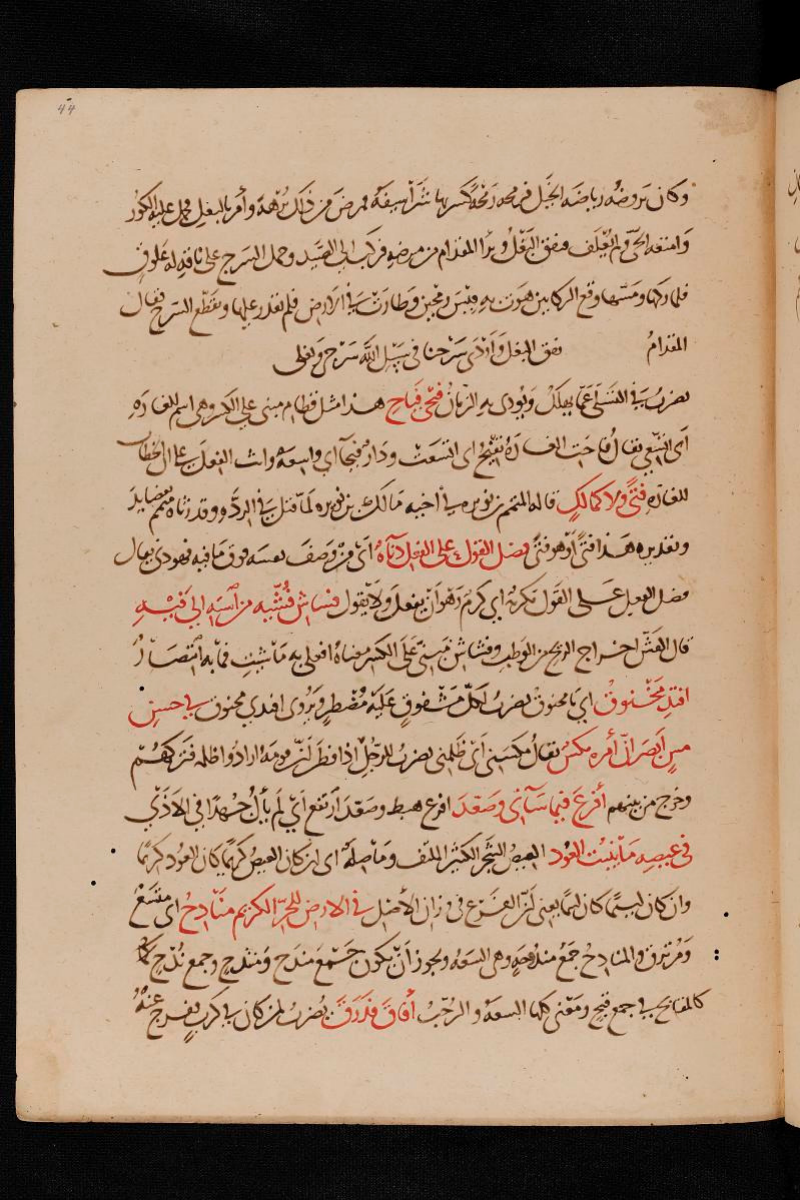 44
وكان يروضه رياضة الخيل فرمحه رمحة كسر بها شراسيفه فمرض من ذلك برهة وأمر بالبغل فحمل عليه الكور
وامتعه الحي ولم يعلف فنفق البغل وبرأ المقدام من مرضه فركب الى الصيد وحمل السرج على ناقة له علوق
فلما ركبها ومسها وقع الركابين هوت به قيس رمحين وطارت في الارض فلم يقدر عليها وتقطع السرج فقال
المقدام نفق البغل وأودى سرجنا في سبيل الله سرجي وبغل
يضرب في التسلي عما يهلك ويودي به الزمان فيحي فياح هذا مثل قطام مبني على الكسر وهي اسم للغارة
أي اتسعي يقال فاحت الغارة تفيح اي اتسعت ودار فيحاء اي واسعة وانث الفعل على ان الخطاب
للغارة فتى ولا كمالك قاله متمم بن نويرة في اخيه مالك بن نويرة لما قتل في الردة وقد رثاه متمم بقصايد
وتقديره هذا فتى أو هو فتى فضل القول على الفعل دناءة أي من وصف نفسه فوق ما فيه فهو دني يقال
فضل الفعل على القول مكرمة اي كرم وهو أن يفعل ولا يقول فشاش فشيه من استه الى فيه
قال الفش اخراج الريح من الوطب وفشاش مبني على الكسر معناه افعلي به ما شئت فما به انتصار
افتد مخنوق اي يا مخنوق يضرب لكل مشفوق عليه مضطر ويروى افتدى مخنوق في حسن
من ابصر ان أمره مكس يقال مكسني أي ظلمني يضرب للرجل اذا فطن لان قومه ارادوا ظلمه فتركهم
وخرج من بينهم أفرع فيما ساءني وصعد افرع هبط وصعد ارتفع أي لم يأل جهدا في الاذى
في عيصه ما ينبت العود العيص الشجر الكثير الملتف وما صلة اي ان كان العيص كريما كان العود كريما
وان كان لئيما كان لئيما يعني ان الفرع في وزان الأصل في الارض للحر الكريم منادح اي متسع
ومرتزق والمنادح جمع مندوحة وهي السعة ويجوز أن يكون جمع مندح ومنتدح وجمع ندح كما
كالمقابح في جمع قبح ومعنى كلها السعة والرحب أفاق فذرق يضرب لمن كان في كرب ففرج عنه